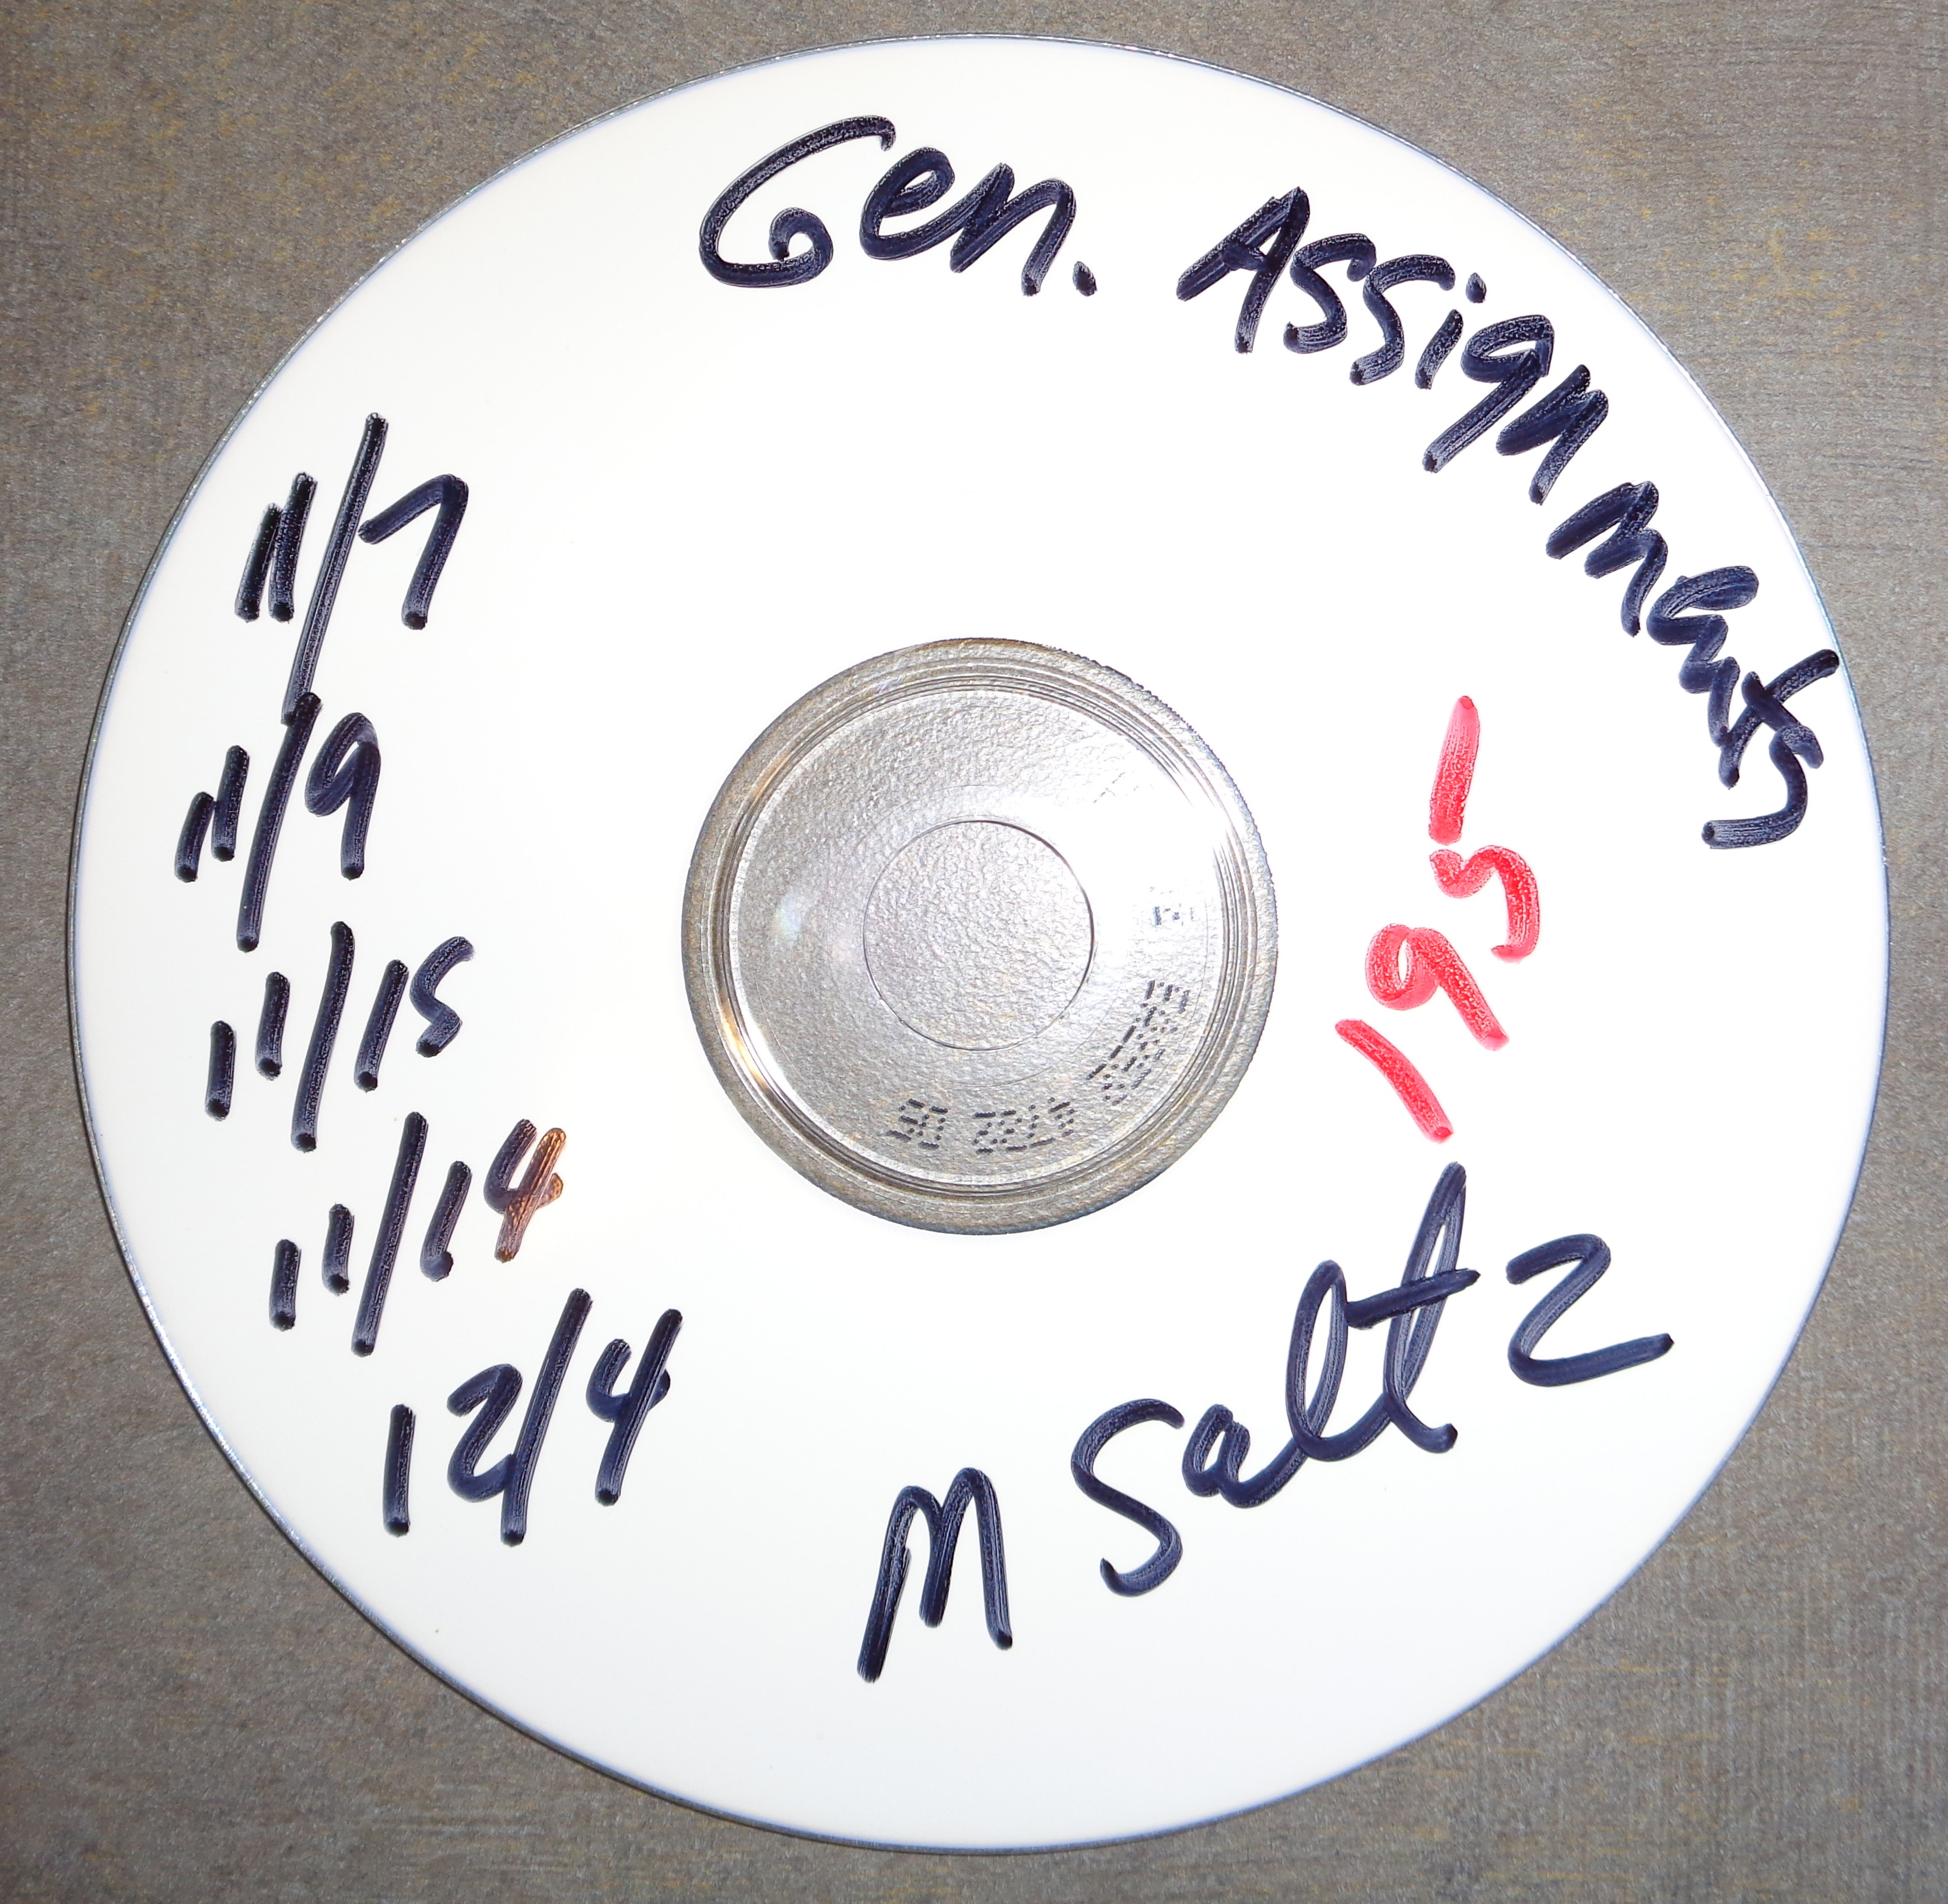 Gen. Assignments
11/7
11/9
11/15
11/14
12/4
195
M Saltz